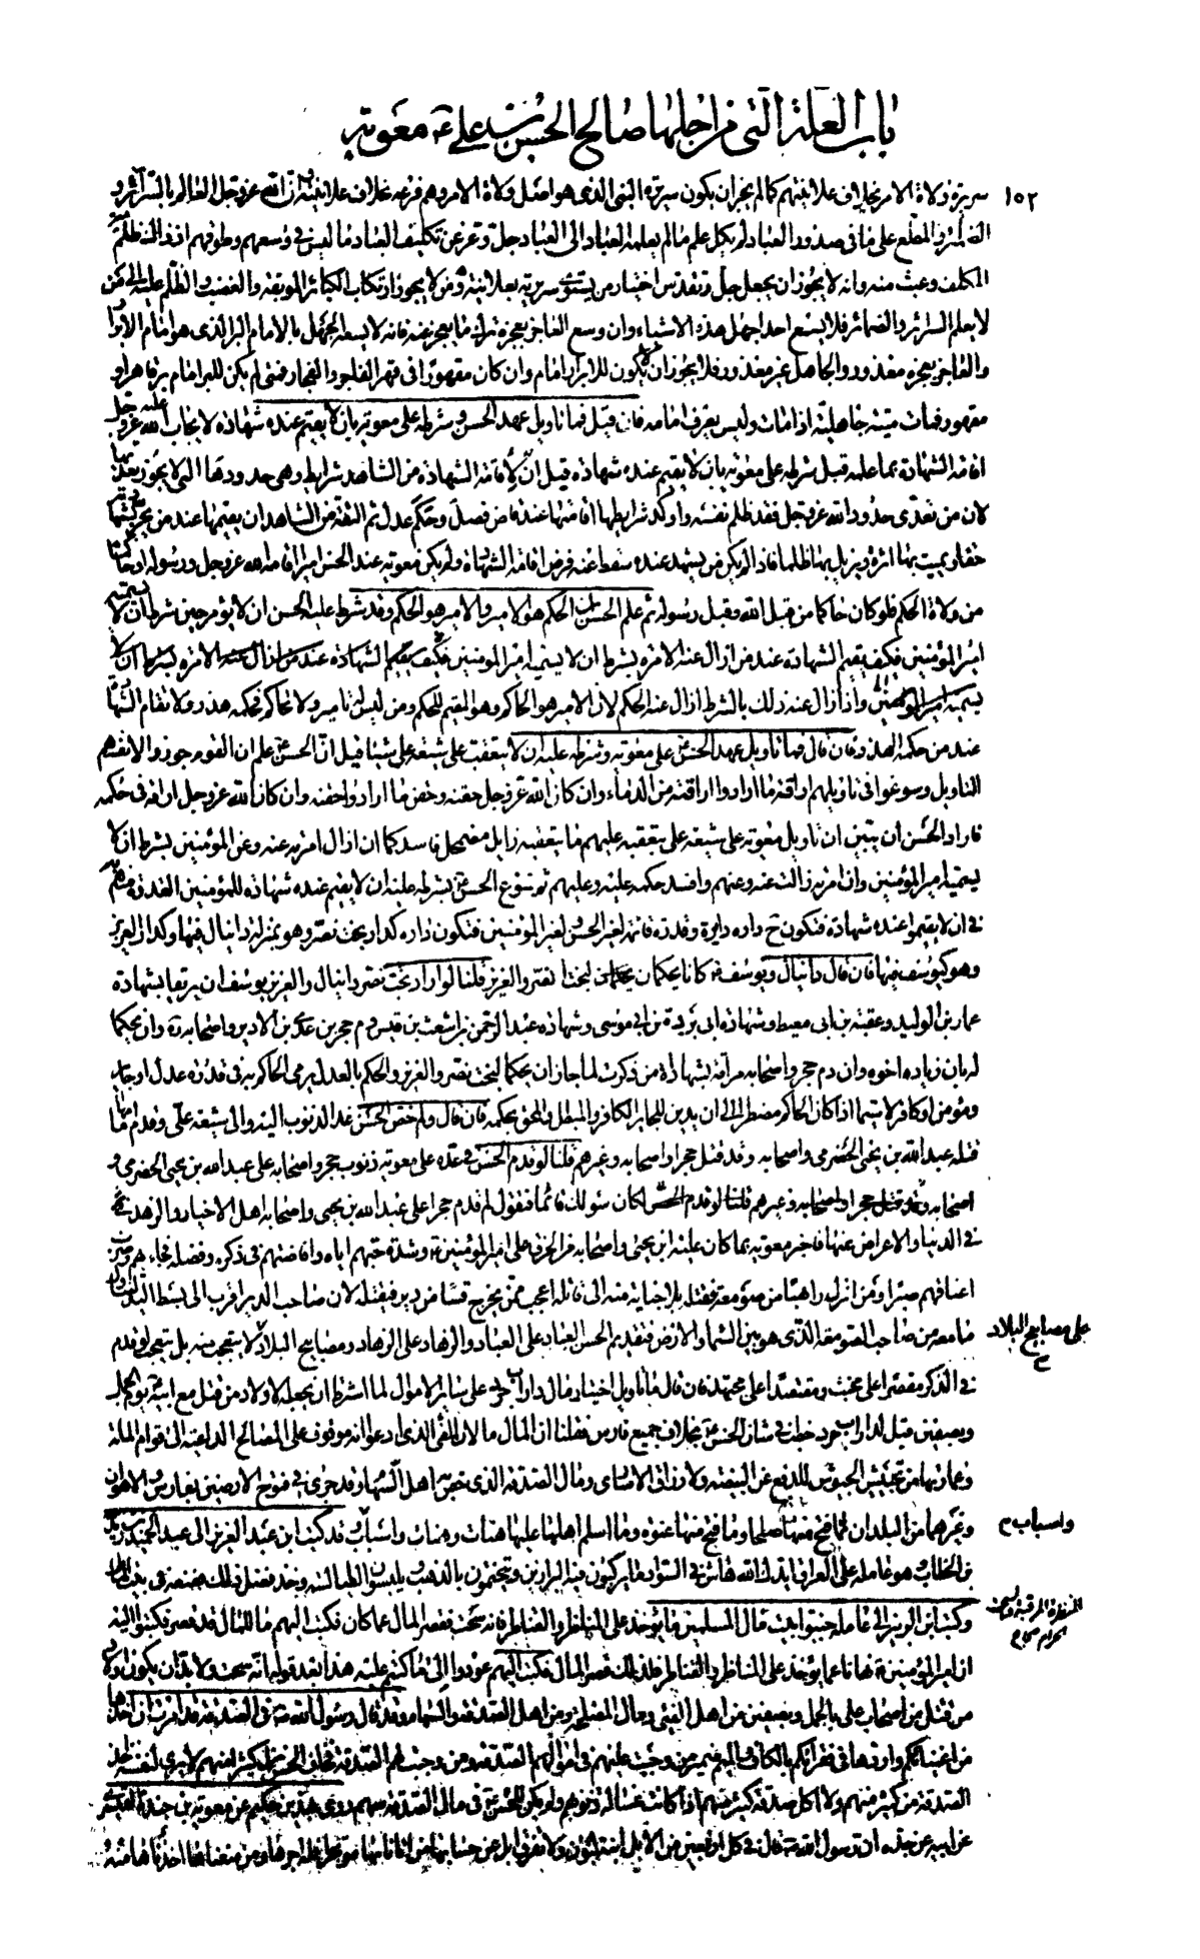 باب العلة التي من اجلها صالح الحسن بن علي ع معوية
١٥٢
سريرة ولاة الامر بخلاف علانيتهم كما لم يجز ان يكون سريرة النبي الذي هو اصل ولاة الامر وهم فرعه بخلاف علانيته وان الله عز وجل العالم بالسرائر و
المطلع على ما في صدور العباد لم يكل علم ما لم يعلمه العباد الى العباد جل وعز عن تكليف العباد ما ليس في وسعهم وطوقهم اذ ذاك ظلم من
المكلف وعبث منه وانه لا يجوز ان يجعل جل وتقدس اختيار من يستوي سريرته بعلانيته ومن لا يجوز ارتكاب الكبائر الموبقة والغضب والظلم منه الى من
لا يعلم السرائر والضمائر فلا يسع احدا جهل هذه الاشياء وان وسع العاجز بعجزه ترك ما يعجز عنه فانه لا يسعه الجهل بالامام البر الذي هو امام الابرار
والعاجز بعجزه معذور والجاهل غير معذور فلا يجوز ان لا يكون للابرار امام وان كان مقهورا في قهر الفاجر والفجار فمتى لم يكن للبر امام بر قاهر او
مقهور فمات ميتة جاهلية اذا مات وليس يعرف امامه فان قيل فما تاويل عهد الحسن وشرطه على معوية بان لا يقيم عنده شهادة لايجاب الله عليه عز وجل
اقامة الشهادة بما علمه قبل شرطه على معوية بان لا يقيم عنده شهادة قيل ان لاقامة الشهادة من الشاهد شرايط وهي حدودها التي لا يجوز تعديها
لان من تعدى حدود الله عز وجل فقد ظلم نفسه واوكد شرايطها اقامتها عند قاض فصل وحكم عدل ثم الثقة من الشاهد ان يقيمها عند من يجر بشهادته
حقا ويميت بها اثرة ويزيل بها ظلما فاذا لم يكن من يشهد عنده سقط عنه فرض اقامة الشهادة ولم يكن معوية عند الحسن اميرا اقامه الله عز وجل ورسوله او حاكما
من ولاة الحكم فلو كان حاكما من قبل الله وقبل رسوله ثم علم الحسن ان الحكم هو الامير والامير هو الحكم وقد شرط عليه الحسن ان لا يؤمر حين شرط ان لا يسميه
امير المؤمنين فكيف يقيم الشهادة عند من ازال عنه الامرة بشرط ان لا يسميه امير المؤمنين
واذا زال عنه ذلك بالشرط ازال عنه الحكم لان الامير هو الحاكم وهو المقيم للحكم ومن ليس له تامير ولا تحاكم فحكمه هذر ولا تقام الشهادة
عند من حكمه الهذر فان قال فما تاويل عهد الحسن ع على معوية وشرطه عليه ان لا يتعقب على شيعة علي شيئا قيل ان الحسن ع علم ان القوم جوزوا لانفسهم
التاويل وسوغوا في تاويلهم اراقة ما ارادوا اراقته من الدماء وان كان الله عز وجل حقنه وحقن ما ارادوا حقنه وان كان الله عز وجل اراقه في حكمه
فاراد الحسن ان يبين ان تاويل معوية على شيعة علي بتعقبه عليهم ما يتعقبه زايل مضمحل فاسد كما انه ازال امرته عنه وعن المؤمنين بشرط ان لا
يسميه امير المؤمنين وان امرته زالت عنه وعنهم وافسد حكمه عليه وعليهم ثم سوغ الحسن ع بشرطه عليه ان لا يقيم عنده شهادة للمؤمنين القدوة منهم به
في ان لا يقيموا عنده شهادة فتكون ح داره دايرة وقدرته قائمة لغير الحسن ولغير المؤمنين فتكون داره كدار بخت نصر وهو بمنزلة دانيال فيها وكدار العزيز
وهو كيوسف فيها فان قال دانيال ويوسف ع كانا يحكمان لبخت نصر والعزيز قلنا لو اراد بخت نصر دانيال والعزيز يوسف ان يريقا بشهادة
عمار بن الوليد وعقبة بن ابي معيط وشهادة ابي بردة بن ابي موسى وشهادة عبد الرحمن بن اشعث بن قيس دم حجر بن عدي بن الادبر واصحابه ره وان يحكما
له بان زيادا اخوه وان دم حجر واصحابه مراقة بشهادة من ذكرت لما جاز ان يحكما لبخت نصر والعزيز والحكم بالعدل يرمي الحاكم به في قدرة عدل او جاير
ومؤمن او كافر لا سيما اذا كان الحاكم مضطرا الى ان يدين للجاير الكافر والمبطل والمحق بحكمه فان قال ولم خص الحسن عد الذنوب اليه والى شيعة علي وقدم امامها
قتله عبد الله بن يحيى الحضرمي واصحابه وقد قتل حجرا واصحابه وغيرهم قلنا لو قدم الحسن في عده على معوية ذنوب حجر واصحابه على عبد الله بن يحيى الحضرمي و
اصحابه لكان سؤالك قائما فتقول لم قدم حجرا على عبد الله بن يحيى واصحابه اهل الاخيار والزهد في
في الدنيا والاعراض عنها فاخبر معوية بما كان عليه ابن يحيى واصحابه من الحرق على امير المؤمنين ع وشدة حبهم اياه وافاضتهم في ذكره وفضله فجاء بهم وضرب
اعناقهم صبرا ومن انزل راهبا من صومعته فقتله بلا جناية منه الى قاتله اعجب ممن يخرج قسا من دير فيقتله لان صاحب الدير اقرب الى بسط اليد لتناول
ما معه من صاحب الصومعة الذي هو بين السماء والارض فتقديم الحسن العباد على العباد والزهاد على الزهاد ومصابيح البلاد لا يتعجب منه بل يتعجب لو قدم
على مصابيح البلاد
في الذكر مقصرا على مخبت ومقتصدا على مجتهد فان قال ما تاويل اختيار مال دارابجرد على ساير الاموال لما اشترط ان يجعله لاولاد من قتل مع ابيه ع يوم الجمل
وبصفين قيل لدارابجرد خطب في شان الحسن ع بخلاف جميع فارس فقلنا ان المال مالان الفيء الذي ادعوا انه موقوف على المصالح الداعية الى قوام الملة
وعمارتها من تجييش الجيوش للدفع عن البيضة ولارزاق الاسارى ومال الصدقة الذي خص به اهل السهام وقد جرى في فتوح الارضين بفارس والاهواز
وغيرهما من البلدان فيما فتح منها صلحا وما فتح منها عنوة وما اسلم اهلها عليها هنات وهنات واسباب قد كتب ابن عبد العزيز الى عبد الحميد بن زيد
واسباب م
بن الخطاب وهو عامله على العراق ايدك الله هاش في السواد ما يركبون فيه البراذين ويتختمون بالذهب ويلبسون الطيالسة وخذ فضل ذلك فضعه في بيت المال
وكتب ابن الزبير الى عامله جنبوا بيت مال المسلمين ما يؤخذ على المناظر والقناطر فانه سحت فقصر المال عما كان فكتب اليهم ما للمال قد قصر فكتبوا اليه
ان امير المؤمنين نهانا عما يؤخذ على المناظر والقناطر فلذلك قصر المال فكتب اليهم عودوا الى ما كنتم عليه هذا بعد قوله انه سحت ولا بد ان يكون اولاد
من قتل من اصحاب علي ع بالجمل وبصفين من اهل الفيء ومال المصلحة ومن اهل الصدقة والسهام وقد قال رسول الله ص في الصدقة قد امرت ان اخذها
من اغنيائكم واردها في فقرائكم بالكاف والميم ضمير من وجبت عليهم في اموالهم الصدقة ومن وجبت لهم الصدقة فخاف الحسن ع ان كثيرا منهم لا يرى لنفسه اخذ
الصدقة من كثير منهم ولا اكل صدقة كثير منهم اذ كانت غسالة ذنوبهم ولم يكن للحسن ع في مال الصدقة سهم روى بهز بن حكيم عن معوية بن حيدة القشيري
عن ابيه عن جده ان رسول الله ص قال في كل اربعين من الابل ابنة لبون ولا تفرق ابل عن حسابها من اتانا بها مؤتجرا فله اجرها ومن منعناها اخذناها منه